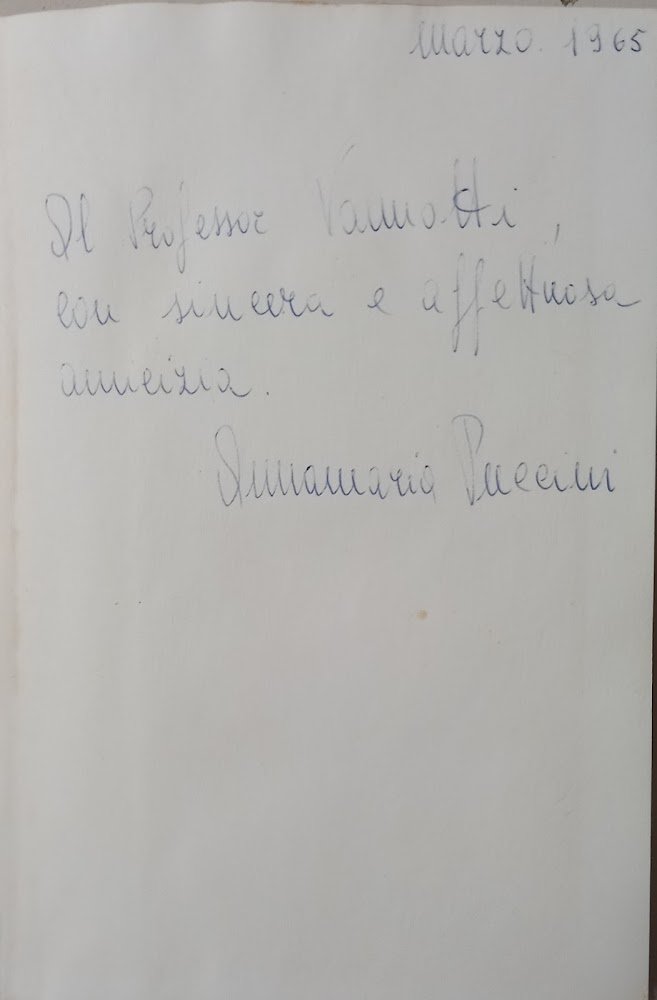 Marzo. 1965
Al Professor Vannotti,
con sincera e affettuosa
amicizia.
Annamaria Puccini